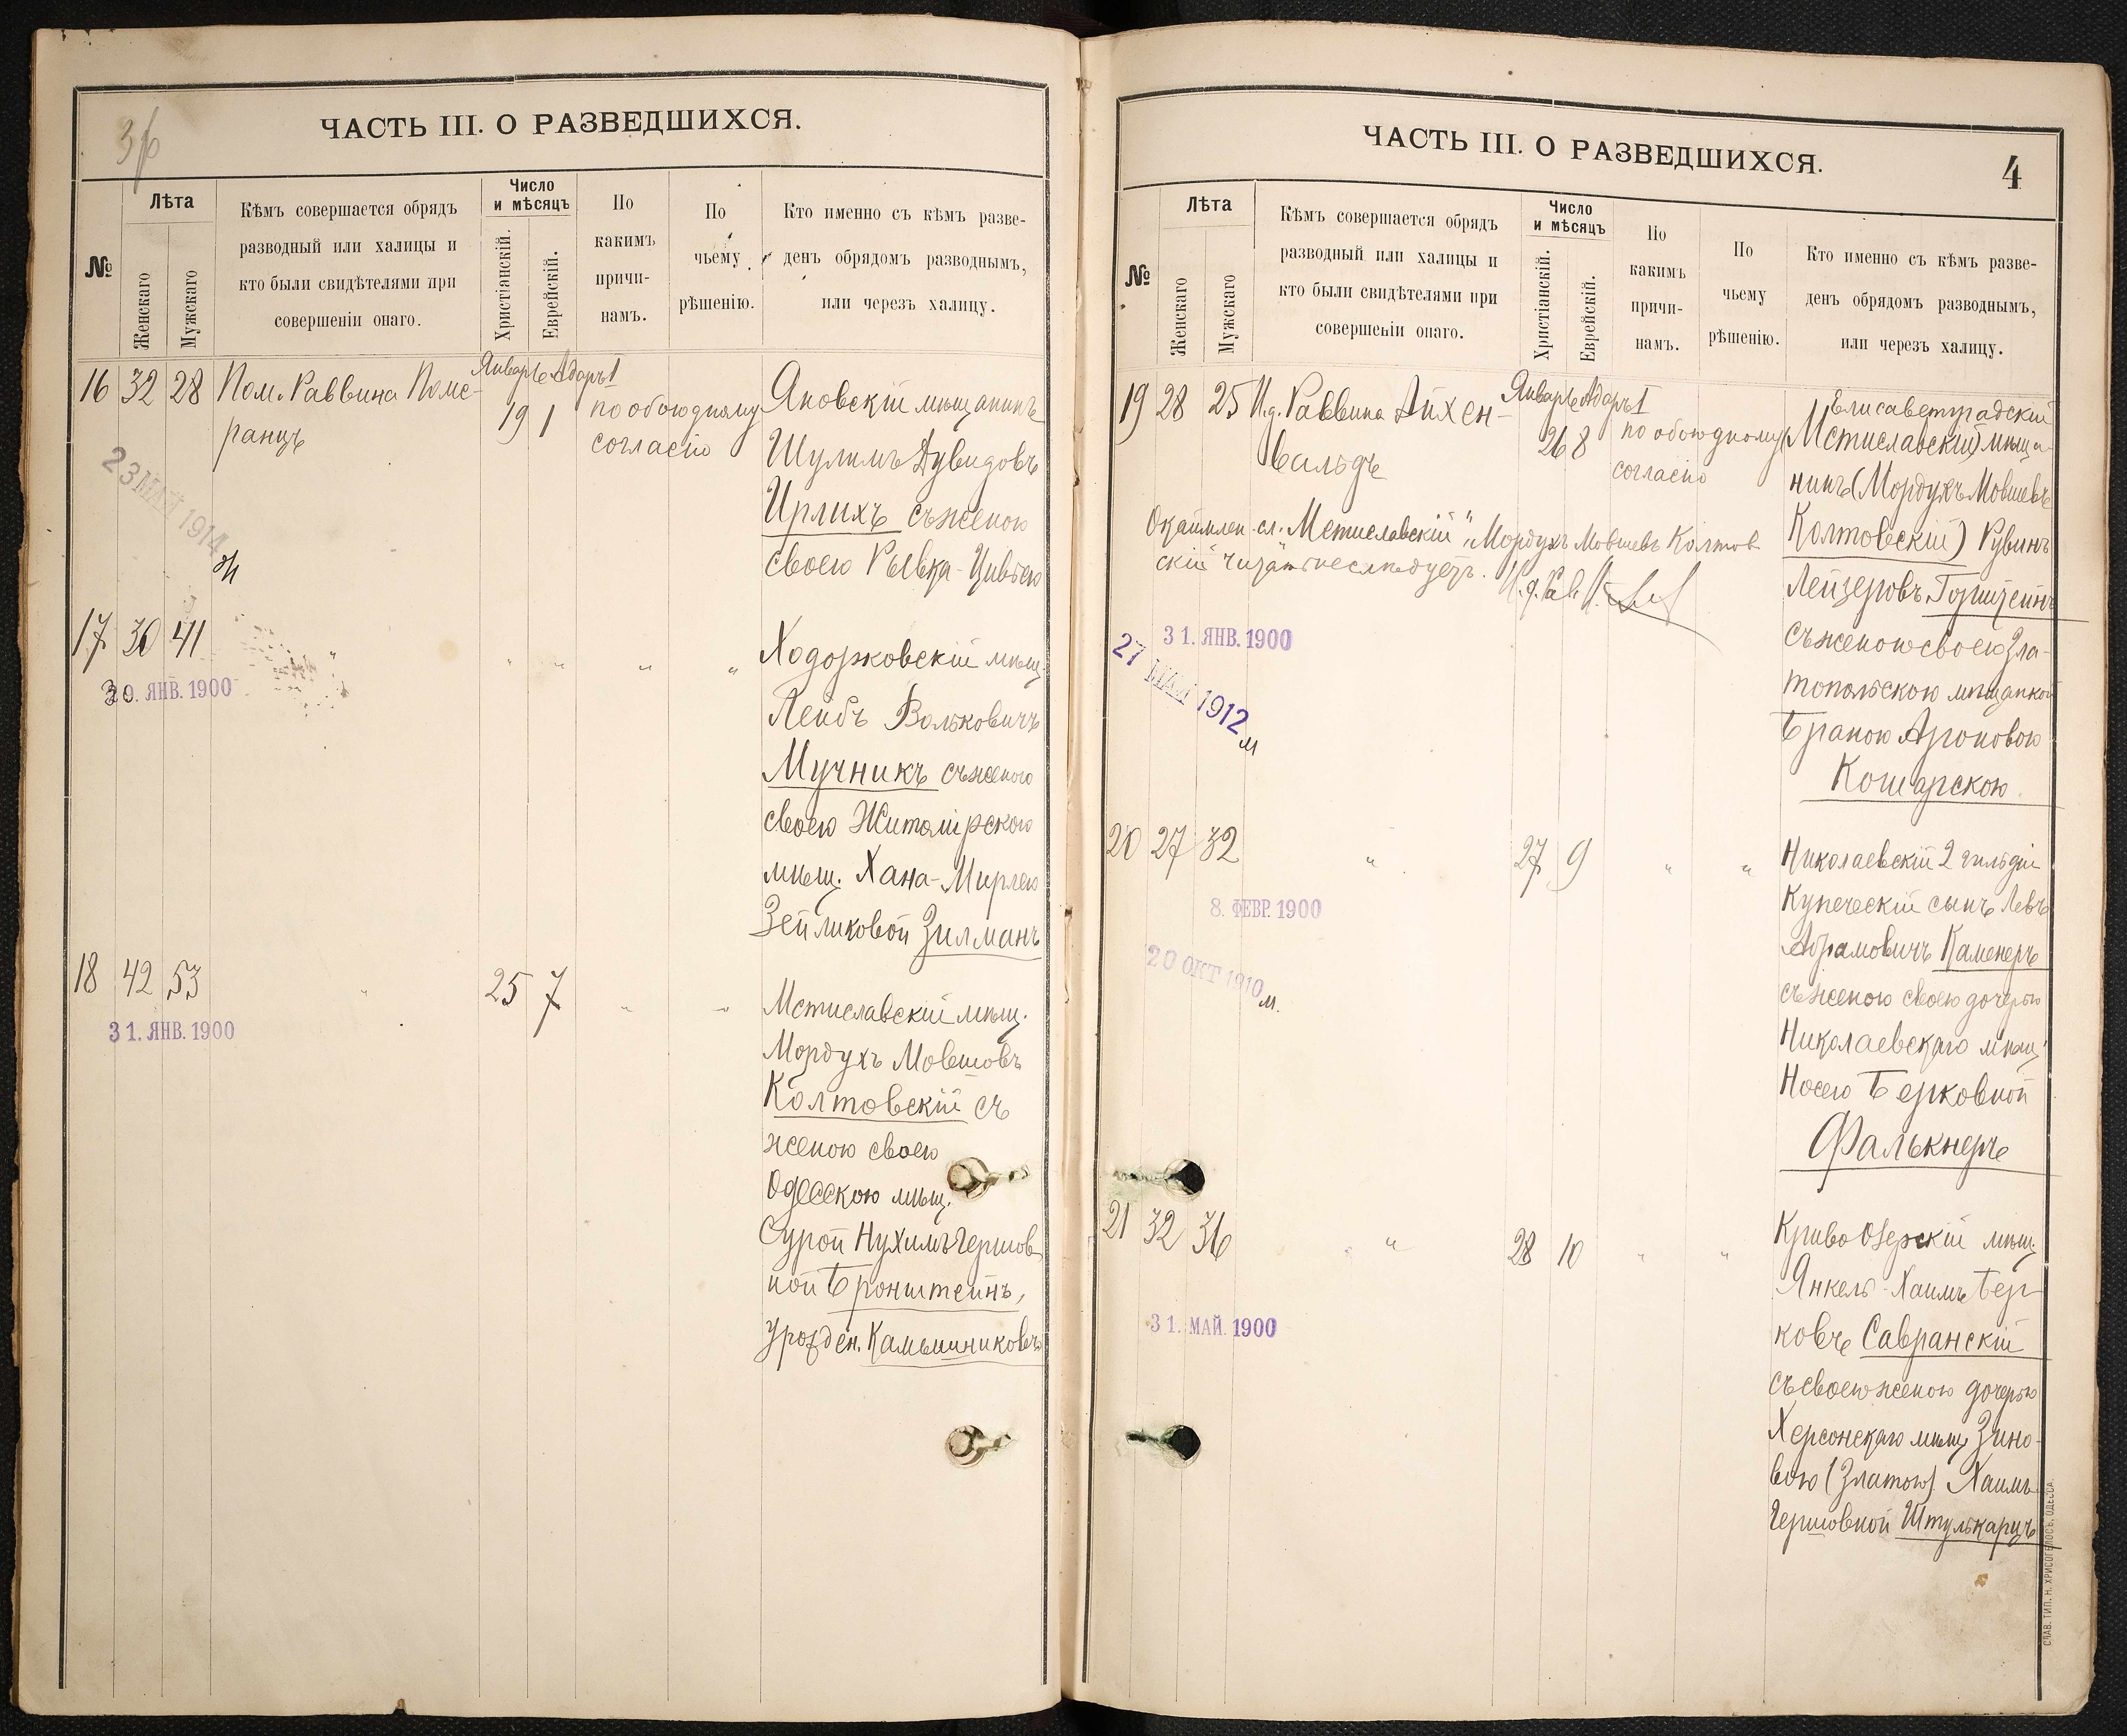 36
ЧАСТЬ III. О РАЗВЕДШИХСЯ.
№
Лѣта
Женскаго
Мужскаго
Кѣмъ совершается обрядъ
разводный или халицы и
кто были свидѣтелями при
совершеніи онаго.
Число
и мѣсяцъ
Христіанскій.
Еврейскій.
По
какимъ
причи-
намъ.
По
чьему
рѣшенію.
Кто именно съ кѣмъ разве-
денъ обрядомъ разводнымъ,
или черезъ халицу.
Январь Адаръ 1
16 32 28 Пом. Раввина Поме-
ранцъ
19 1
по обоюдному
согласію
Яновскій мѣщанинъ
Шулимъ Дувидовъ
Ирлихъ съ женою
своею Рывка-Цивьею
23 МАЙ 1914
17 30 41 " " " " "
Ходорковскій мѣщ.
Лейбъ Вольковичъ
Мучникъ съ женою
своею Житомірскою
мѣщ. Хана-Мирлею
Зейликовой Зилманъ
30. ЯНВ. 1900
18 42 53 " 25 7 " "
Мстиславскій мѣщ.
Мордухъ Мовшовъ
Колтовскій съ
женою своею
Одесскою мѣщ.
Сурой Нухимъ Гершов
ной Бронштейнъ,
урожден. Камышниковъ
31. ЯНВ. 1900
ЧАСТЬ III. О РАЗВЕДШИХСЯ.
4
№
Лѣта
Женскаго
Мужскаго
Кѣмъ совершается обрядъ
разводный или халицы и
кто были свидѣтелями при
совершеніи онаго.
Число
и мѣсяцъ
Христіанскій.
Еврейскій.
По
какимъ
причи-
намъ.
По
чьему
рѣшенію.
Кто именно съ кѣмъ разве-
денъ обрядомъ разводнымъ,
или черезъ халицу.
Январь Адаръ I
19 28 25 И.д. Раввина Айхен-
вальдъ
26 8
по обоюдному
согласію
Елисаветградскій
(Мстиславскій) мѣща-
нинъ (Мордухъ Мовшевъ
Колтовскій) Рувинъ
Лейзеровъ Горштейнъ
съ женою своею Зла-
топольскою мѣщанкой
Браною Ароновою
Кошарскою.
Окаймлен. сл. "Мстиславскій", "Мордухъ Мовшевъ Колтов
скій" читать не слѣдуетъ. И.д. Рав.
31. ЯНВ. 1900
27 МАЙ 1912 м
20 27 32 " 27 9 " "
Николаевскій 2 гильдіи
Купеческій сынъ Левъ
Абрамовичъ Каменеръ
съ женою своею дочерью
Николаевскаго мѣщ.
Носею Берковной
Фалькнеръ
8. ФЕВР. 1900
20 ОКТ 1910 м.
21 32 36 " 28 10 " "
Кривоозерскій мѣщ.
Янкель-Хаимъ Бер-
ковъ Савранскій
съ своею женою дочерью
Херсонскаго мѣщ. Зино-
вою (Златою) Хаимъ
Гершовной Штулькарцъ
31. МАЙ. 1900
СЛАВ. ТИП. Н. ХРИСОГЕЛОСЪ, ОДЕССА.